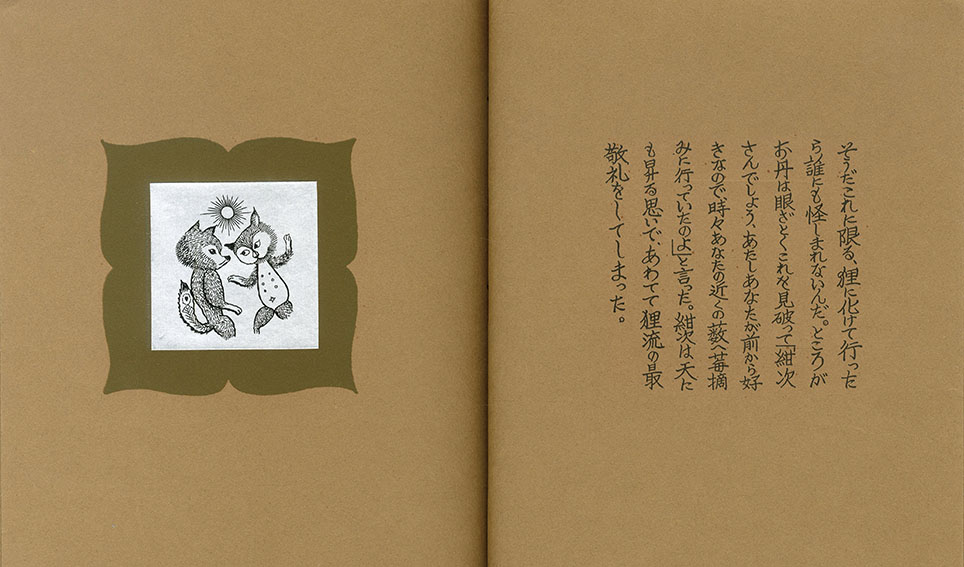 そうだこれに限る、狸に化けて行った
ら誰にも怪しまれないんだ。ところが
お丹は眼ざとくこれを見破って「紺次
さんでしょう、あたしあなたが前から好
きなので時々あなたの近くの薮へ苺摘
みに行っていたのよ」と言った。紺次は天に
も昇る思いで、あわてて狸流の最
敬礼をしてしまった。